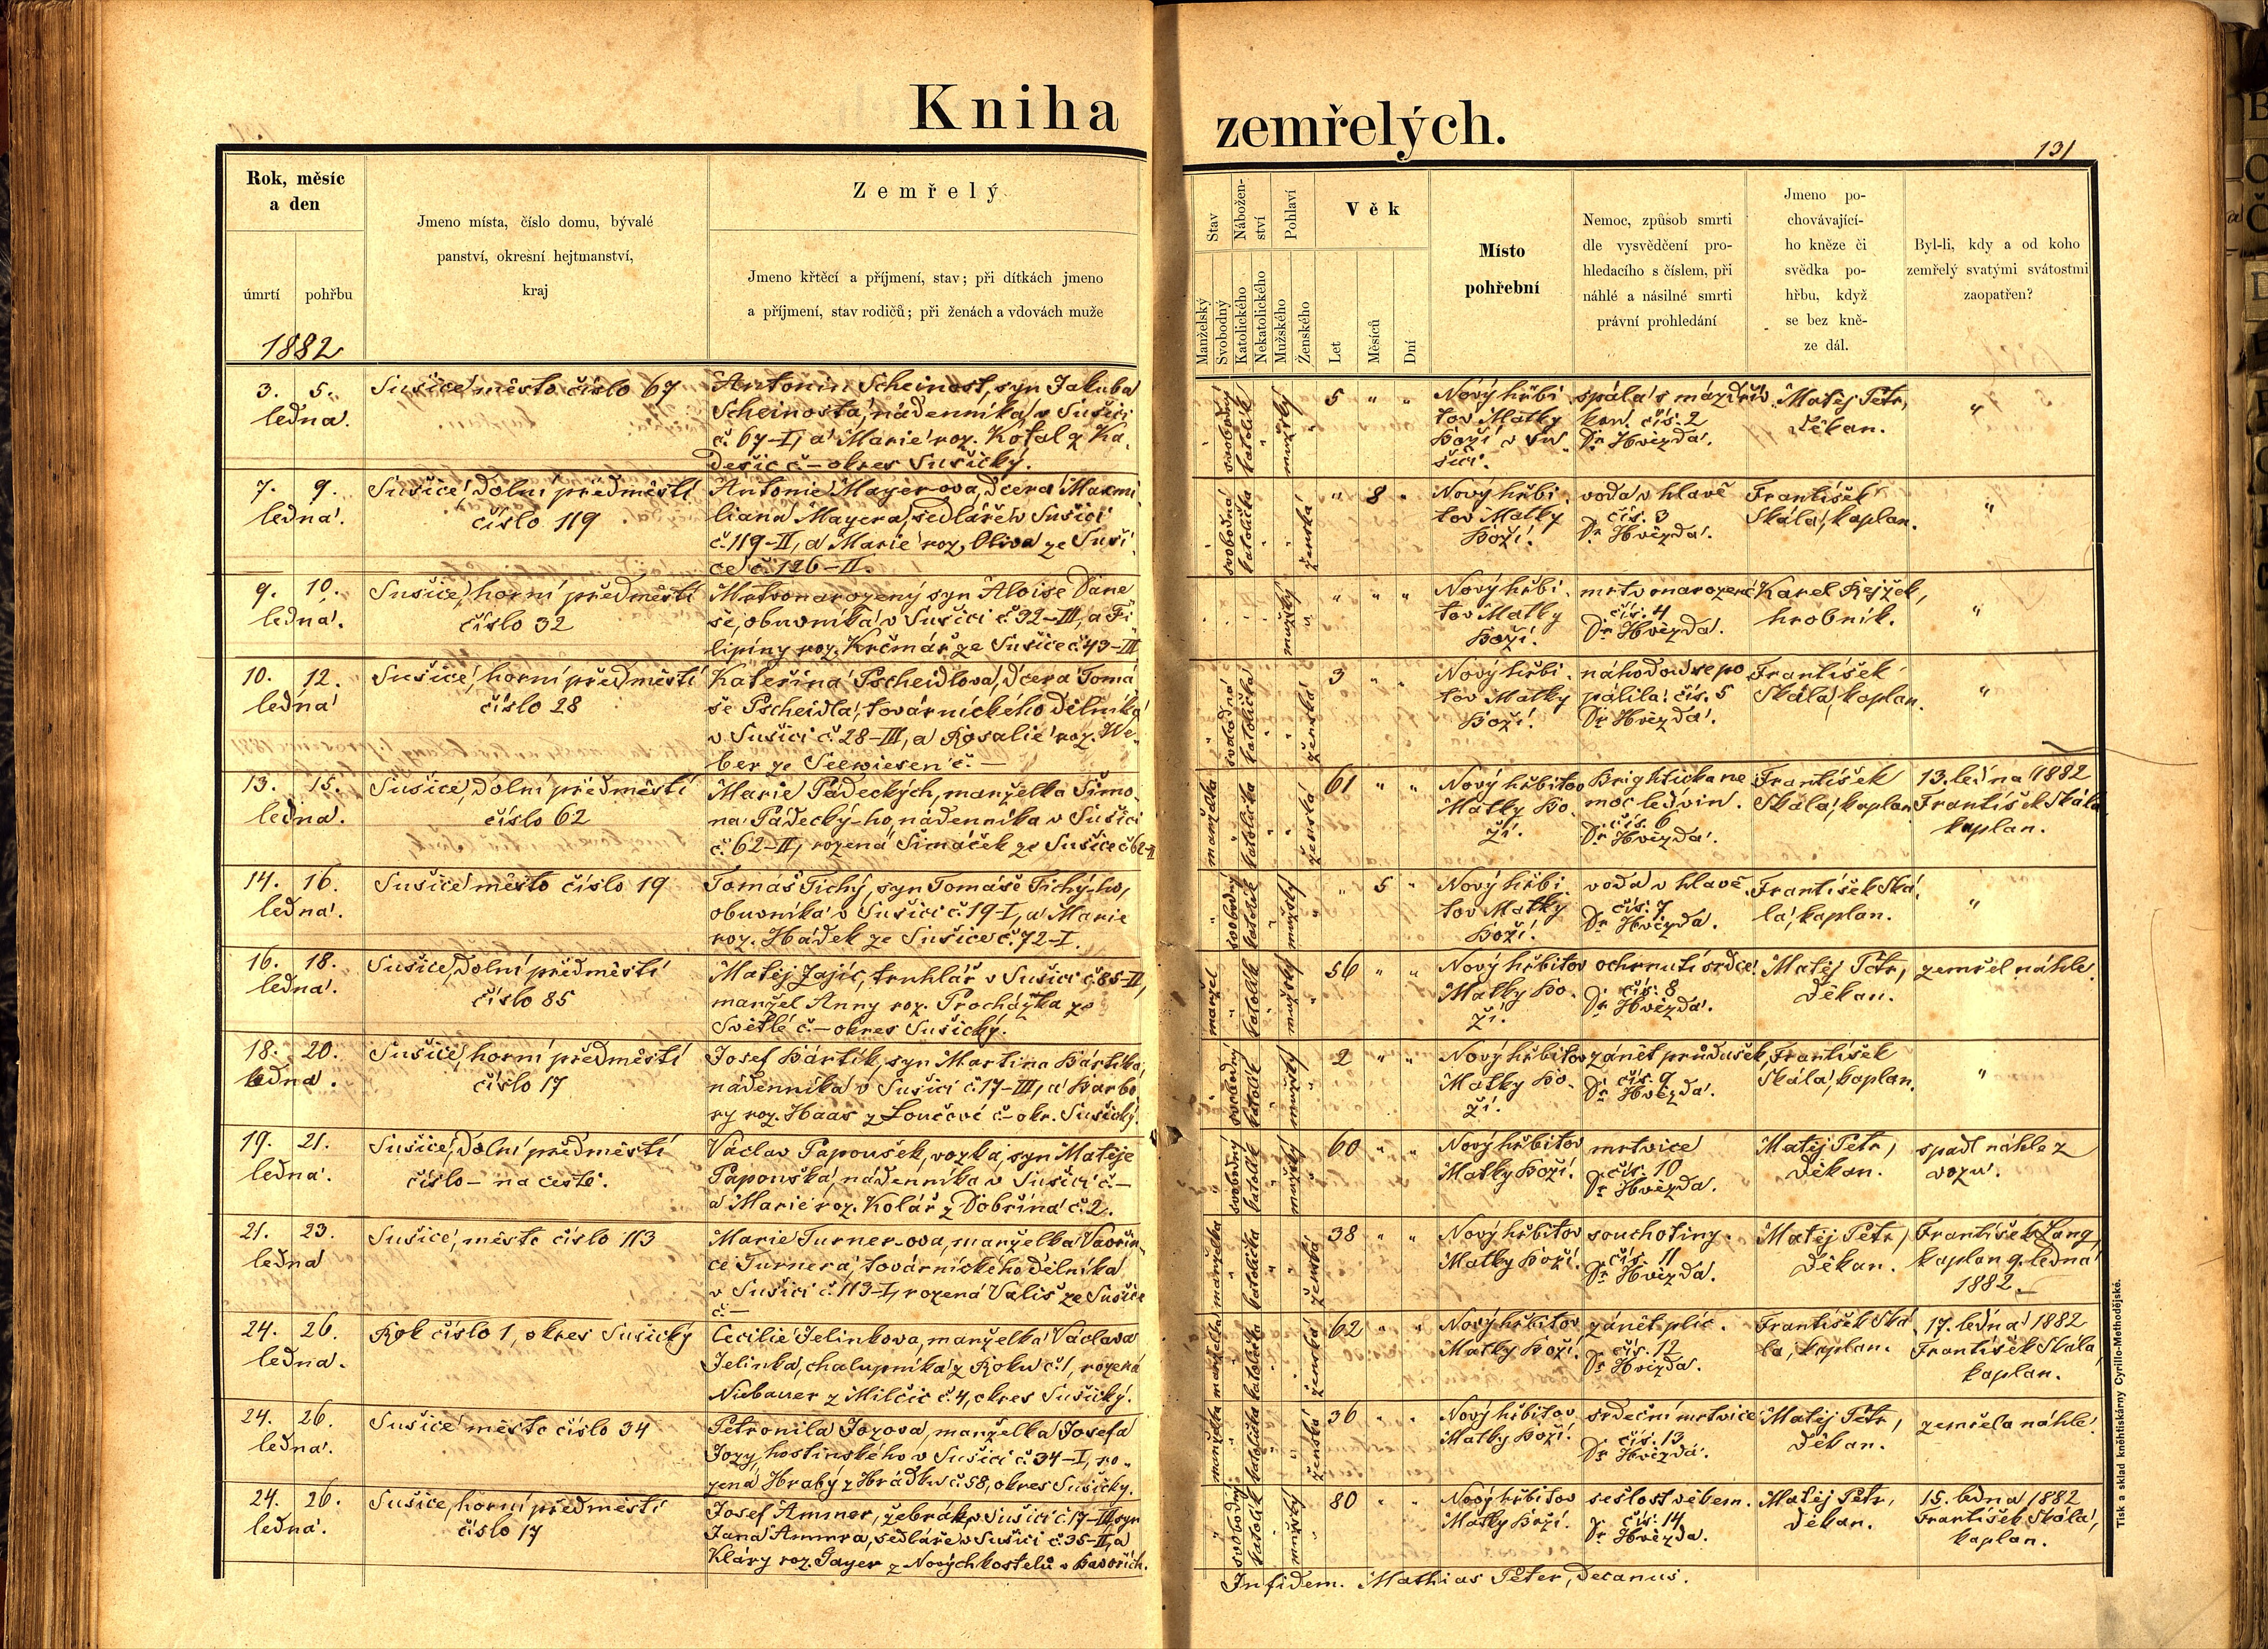 Kniha zemřelých.
131
Rok, měsíc
a den
úmrtí pohřbu
1882
Jmeno místa, číslo domu, bývalé
panství, okresní hejtmanství,
kraj
Zemřelý
Jmeno křtěcí a příjmení, stav; při dítkách jmeno
a příjmení, stav rodičů; při ženách a vdovách muže
Stav
Manželský
Svobodný
Nábožen-
ství
Katolického
Nekatolického
Pohlaví
Mužského
Ženského
Věk
Let
Měsíců
Dní
Místo
pohřební
Nemoc, způsob smrti
dle vysvědčení pro-
hledacího s číslem, při
náhlé a násilné smrti
právní prohledání
Jmeno po-
chovávající-
ho kněze či
svědka po-
hřbu, když
se bez kně-
ze dál.
Byl-li, kdy a od koho
zemřelý svatými svátostmi
zaopatřen?
3. 5.
ledna.
Sušice město číslo 67
Antonín Scheinost, syn Jakuba
Scheinosta, nádenníka v Sušici
č. 67-I, a Marie roz. Kotal z Ka-
dešic č.– okres Sušický.
svobodný
katolík
mužský
5 " "
Nový hřbi-
tov Matky
Boží v Su-
šici.
spála s mázdřiv-
kou. čís. 2
Dr. Hvězda.
Matěj Petr,
děkan.
"
7. 9.
ledna.
Sušice, dolní předměstí
číslo 119
Antonie Mayer-ova, dcera Maxmi-
liana Mayera, sedláře v Sušici
č. 119-II, a Marie roz. Oliva ze Suši-
ce č. 126-II.
svobodná
katolička
ženská
" 8 "
Nový hřbi-
tov Matky
Boží.
voda v hlavě
čís. 3
Dr. Hvězda.
František
Skála, kaplan.
"
9. 10.
ledna.
Sušice, horní předměstí
číslo 32
Mrtvonarozený syn Aloise Dane-
še, obuvníka v Sušici č. 32-III, a Fi-
lipiny roz. Krčmář ze Sušice č. 43-III
mužský
" " "
Nový hřbi-
tov Matky
Boží.
mrtvonarozené
čís. 4
Dr. Hvězda.
Karel Rejžek,
hrobník.
"
10. 12.
ledna
Sušice, horní předměstí
číslo 28
Kateřina Pscheidlova, dcera Tomá-
še Pscheidla, továrnického dělníka
v Sušici č. 28-III, a Rosalie roz. We-
ber ze Seewiesen č. —
svobodná
katolička
ženská
3 " "
Nový hřbi-
tov Matky
Boží.
náhodou se po-
pálila. čís. 5
Dr. Hvězda.
František
Skála, kaplan.
"
13. 15.
ledna.
Sušice, dolní předměstí
číslo 62
Marie Pádeckých, manželka Šimo-
na Pádecký-ho, nádenníka v Sušici
č. 62-II, rozená Šimáček ze Sušice č. 62-II
manželka
katolička
ženská
61 " "
Nový hřbitov
Matky Bo-
ží.
Brightická ne-
moc ledvin.
čís. 6
Dr. Hvězda.
František
Skála, kaplan
13. ledna 1882
František Skála
kaplan.
14. 16.
ledna.
Sušice město číslo 19
Tomáš Tichý, syn Tomáše Tichý-ho,
obuvníka v Sušici č. 19-I, a Marie
roz. Hádek ze Sušice č. 72-I.
svobodný
katolík
mužský
" 5 "
Nový hřbi-
tov Matky
Boží.
voda v hlavě.
čís. 7
Dr. Hvězda.
František Ská-
la, kaplan.
"
16. 18.
ledna.
Sušice, dolní předměstí
číslo 85
Matěj Zajíc, truhlář v Sušici č. 85-II,
manžel Anny roz. Procházka ze
Světlé č.– okres Sušický.
manžel
katolík
mužský
56 " "
Nový hřbitov
Matky Bo-
ží.
ochrnutí srdce.
čís. 8
Dr. Hvězda.
Matěj Petr,
děkan.
zemřel náhle.
18. 20.
ledna.
Sušice, horní předměstí
číslo 17
Josef Bártík, syn Martina Bártíka,
nádenníka v Sušici č. 17-III, a Barbo-
ry roz. Haas z Loučové č.– okr. Sušický.
svobodný
katolík
mužský
2 " "
Nový hřbitov
Matky Bo-
ží.
zánět průdušek,
čís. 9
Dr. Hvězda.
František
Skála, kaplan.
"
19. 21.
ledna.
Sušice, dolní předměstí
číslo – na cestě.
Václav Papoušek, vozka, syn Matěje
Papouška, nádenníka v Sušici č.—
a Marie roz. Kolář z Dobřína č. 2.
svobodný
katolík
mužský
60 " "
Nový hřbitov
Matky Boží.
mrtvice
čís. 10
Dr. Hvězda.
Matěj Petr,
děkan.
spadl náhle z
vozu.
21. 23.
ledna
Sušice, město číslo 113
Marie Turner-ova, manželka Vavřin-
ce Turnera, továrnického dělníka
v Sušici č. 113-I, rozená Vališ ze Sušice
č.—
manželka
katolička
ženská
38 " "
Nový hřbitov
Matky Boží.
souchotiny.
čís. 11
Dr. Hvězda.
Matěj Petr,
děkan.
František Lang,
kaplan 9. ledna
1882.
24. 26.
ledna.
Rok číslo 1, okres Sušický
Cecilie Jelinkova, manželka Václava
Jelinka, chalupníka z Roku č. 1, rozená
Niebauer z Milčic č. 4, okres Sušický.
manželka
katolička
ženská
62 " "
Nový hřbitov
Matky Boží.
zánět plic.
čís. 12
Dr. Hvězda.
František Ská-
la, kaplan.
17. ledna 1882
František Skála,
kaplan.
24. 26.
ledna.
Sušice město číslo 34
Petronila Jozova, manželka Josefa
Jozy, hostinského v Sušici č. 34-I, ro-
zená Hrabý z Hrádku č. 58, okres Sušický.
manželka
katolička
ženská
36 " "
Nový hřbitov
Matky Boží.
srdeční mrtvice
čís. 13
Dr. Hvězda.
Matěj Petr,
děkan.
zemřela náhle.
24. 26.
ledna.
Sušice, horní předměstí
číslo 17
Josef Ammer, žebrák v Sušici č. 17-III, syn
Jana Ammra, sedláře v Sušici č. 35-II, a
Kláry roz. Gayer z Nových kostelů v Bavořích.
svobodný
katolík
mužský
80 " "
Nový hřbitov
Matky Boží.
sešlost věkem.
čís. 14
Dr. Hvězda.
Matěj Petr,
děkan.
15. ledna 1882
František Skála,
kaplan.
In fidem. Mathias Peter, decanus.
Tisk a sklad kněhtiskárny Cyrillo-Methodějské.